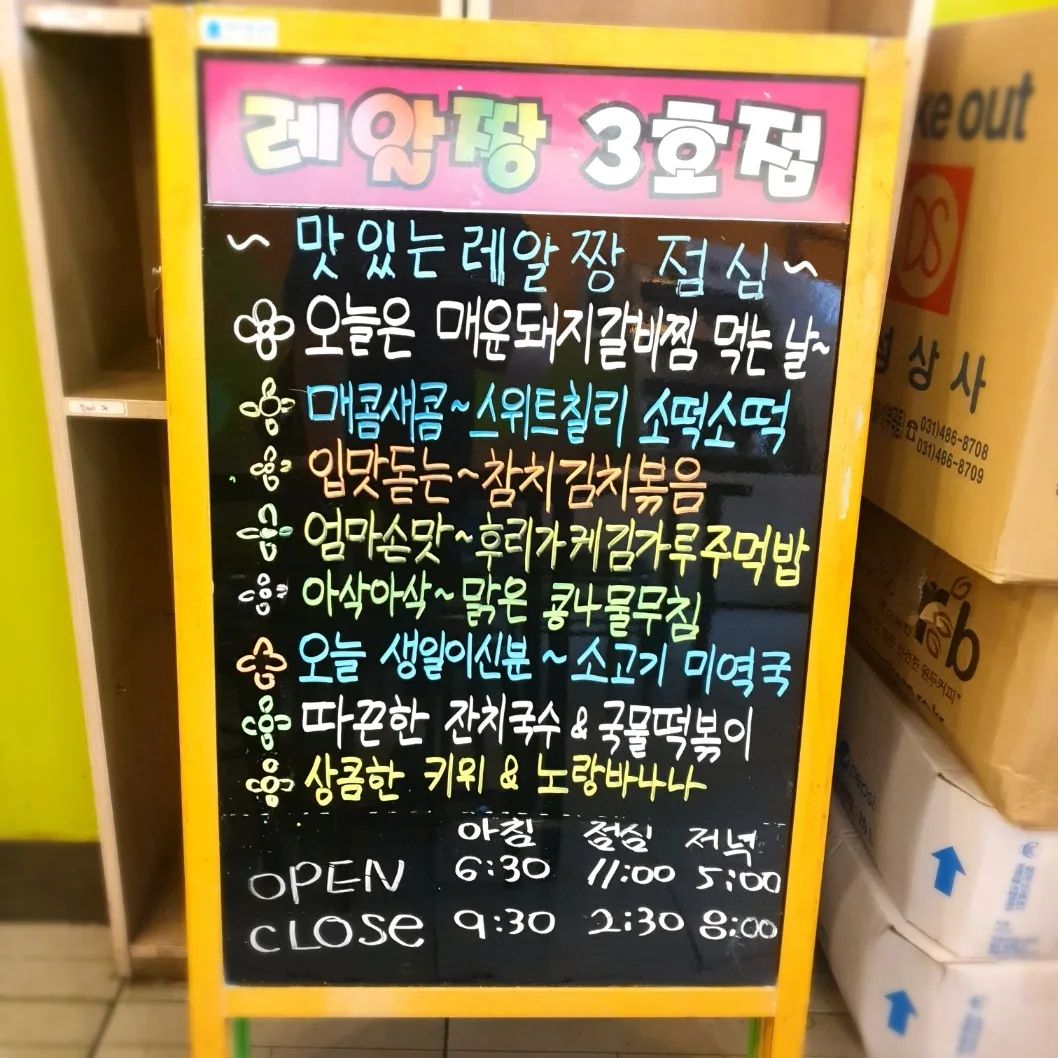 레알짱 3호점
~ 맛있는 레알짱 점심~
오늘은 매운돼지갈비찜 먹는 날~
매콤새콤~스위트칠리 소떡소떡
입맛돋는~참치김치볶음
엄마손맛~후리가케김가루주먹밥
아삭아삭~맑은 콩나물무침
오늘 생일이신분~소고기 미역국
따끈한 잔치국수 & 국물떡볶이
상콤한 키위 & 노랑바나나
아침 점심 저녁
OPEN 6:30 11:00 5:00
CLOSe 9:30 2:30 8:00
ke out
DS
상사
031)486-8708
031)486-8709